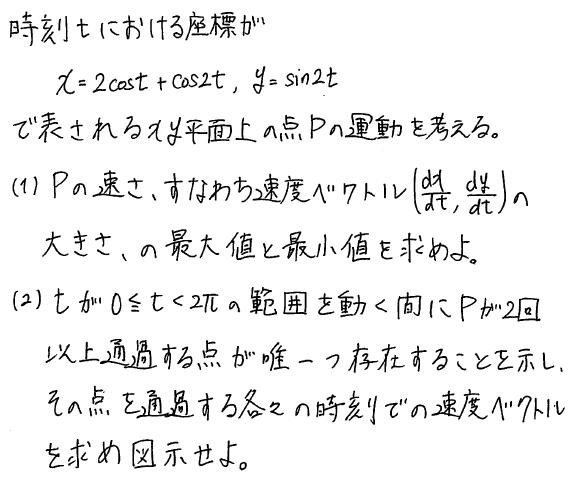 時刻tにおける座標が
x=2cost+cos2t, y=sin2t
で表されるxy平面上の点Pの運動を考える。
(1) Pの速さ、すなわち速度ベクトル(dx/dt, dy/dt)の
大きさ、の最大値と最小値を求めよ。
(2) tが0≦t<2πの範囲を動く間にPが2回
以上通過する点が唯一つ存在することを示し、
その点を通過する各々の時刻での速度ベクトル
を求め図示せよ。